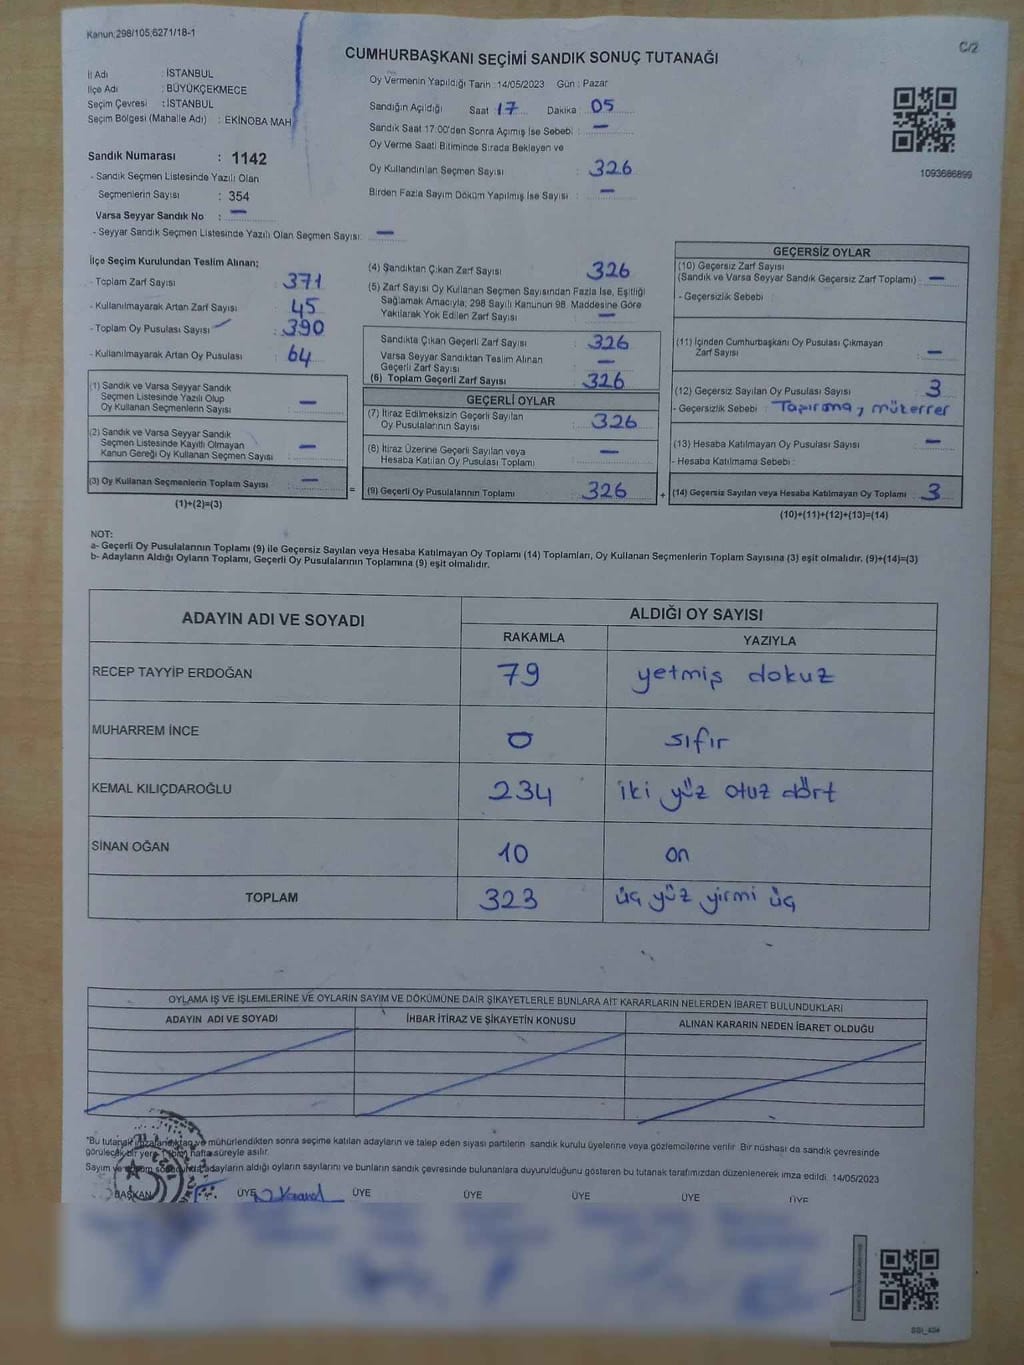 Kanun,298/105,6271/18-1
C/2
CUMHURBAŞKANI SEÇİMİ SANDIK SONUÇ TUTANAĞI
İl Adı : İSTANBUL
İlçe Adı : BÜYÜKÇEKMECE
Seçim Çevresi : İSTANBUL
Seçim Bölgesi (Mahalle Adı) : EKİNOBA MAH
Sandık Numarası : 1142
- Sandık Seçmen Listesinde Yazılı Olan
Seçmenlerin Sayısı : 354
Varsa Seyyar Sandık No : —
- Seyyar Sandık Seçmen Listesinde Yazılı Olan Seçmen Sayısı: —
Oy Vermenin Yapıldığı Tarih :14/05/2023 Gün : Pazar
Sandığın Açıldığı Saat 17 Dakika 05
Sandık Saat 17:00'den Sonra Açımış İse Sebebi : —
Oy Verme Saati Bitiminde Sırada Bekleyen ve
Oy Kullandırılan Seçmen Sayısı : 326
Birden Fazla Sayım Döküm Yapılmış İse Sayısı : —
1093686899
İlçe Seçim Kurulundan Teslim Alınan;
- Toplam Zarf Sayısı : 371
- Kullanılmayarak Artan Zarf Sayısı : 45
- Toplam Oy Pusulası Sayısı : 390
- Kullanılmayarak Artan Oy Pusulası : 64
(1) Sandık ve Varsa Seyyar Sandık
Seçmen Listesinde Yazılı Olup
Oy Kullanan Seçmenlerin Sayısı : —
(2) Sandık ve Varsa Seyyar Sandık
Seçmen Listesinde Kayıtlı Olmayan
Kanun Gereği Oy Kullanan Seçmen Sayısı : —
(3) Oy Kullanan Seçmenlerin Toplam Sayısı : —
(1)+(2)=(3)
=
(4) Sandıktan Çıkan Zarf Sayısı : 326
(5) Zarf Sayısı Oy Kullanan Seçmen Sayısından Fazla İse, Eşitliği
Sağlamak Amacıyla; 298 Sayılı Kanunun 98. Maddesine Göre
Yakılarak Yok Edilen Zarf Sayısı : —
Sandıkta Çıkan Geçerli Zarf Sayısı : 326
Varsa Seyyar Sandıktan Teslim Alınan
Geçerli Zarf Sayısı : —
(6) Toplam Geçerli Zarf Sayısı : 326
GEÇERLİ OYLAR
(7) İtiraz Edilmeksizin Geçerli Sayılan
Oy Pusulalarının Sayısı : 326
(8) İtiraz Üzerine Geçerli Sayılan veya
Hesaba Katılan Oy Pusulası Toplamı : —
(9) Geçerli Oy Pusulalarının Toplamı : 326
+
GEÇERSİZ OYLAR
(10) Geçersiz Zarf Sayısı
(Sandık ve Varsa Seyyar Sandık Geçersiz Zarf Toplamı) : —
- Geçersizlik Sebebi :
(11) İçinden Cumhurbaşkanı Oy Pusulası Çıkmayan
Zarf Sayısı : —
(12) Geçersiz Sayılan Oy Pusulası Sayısı : 3
- Geçersizlik Sebebi : Taşırma, mükerrer
(13) Hesaba Katılmayan Oy Pusulası Sayısı : —
- Hesaba Katılmama Sebebi :
(14) Geçersiz Sayılan veya Hesaba Katılmayan Oy Toplamı : 3
(10)+(11)+(12)+(13)=(14)
NOT:
a- Geçerli Oy Pusulalarının Toplamı (9) ile Geçersiz Sayılan veya Hesaba Katılmayan Oy Toplamı (14) Toplamları, Oy Kullanan Seçmenlerin Toplam Sayısına (3) eşit olmalıdır. (9)+(14)=(3)
b- Adayların Aldığı Oyların Toplamı, Geçerli Oy Pusulalarının Toplamına (9) eşit olmalıdır.
ADAYIN ADI VE SOYADI ALDIĞI OY SAYISI
RAKAMLA YAZIYLA
RECEP TAYYİP ERDOĞAN 79 yetmiş dokuz
MUHARREM İNCE 0 sıfır
KEMAL KILIÇDAROĞLU 234 iki yüz otuz dört
SİNAN OĞAN 10 on
TOPLAM 323 üç yüz yirmi üç
OYLAMA İŞ VE İŞLEMLERİNE VE OYLARIN SAYIM VE DÖKÜMÜNE DAİR ŞİKAYETLERLE BUNLARA AİT KARARLARIN NELERDEN İBARET BULUNDUKLARI
ADAYIN ADI VE SOYADI İHBAR İTİRAZ VE ŞİKAYETİN KONUSU ALINAN KARARIN NEDEN İBARET OLDUĞU
"Bu tutanak imzalandıktan ve mühürlendikten sonra seçime katılan adayların ve talep eden siyasi partilerin sandık kurulu üyelerine veya gözlemcilerine verilir. Bir nüshası da sandık çevresinde
görülecek bir yere 1 (bir) hafta süreyle asılır.
Sayım ve döküm sonucunda adayların aldığı oyların sayılarını ve bunların sandık çevresinde bulunanlara duyurulduğunu gösteren bu tutanak tarafımızdan düzenlenerek imza edildi. 14/05/2023
BAŞKAN ÜYE ÜYE ÜYE ÜYE ÜYE ÜYE